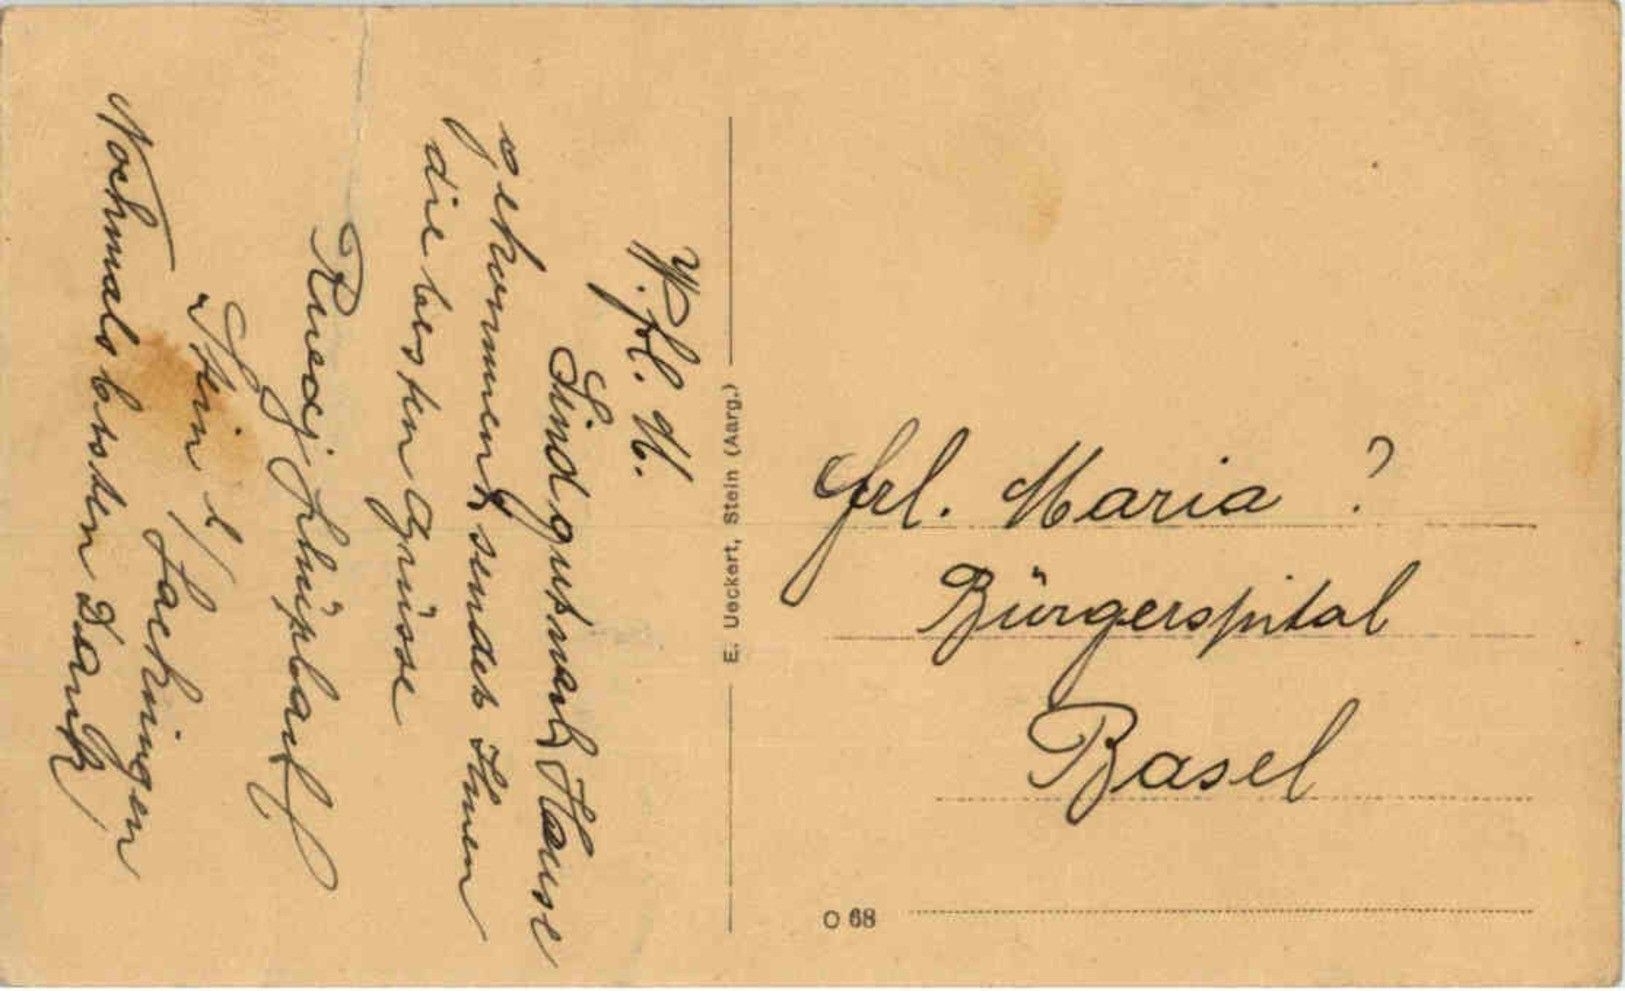 W. frl. M.
Sind gut nach Hause
gekommen, sendet Ihnen
die besten Grüsse
Ruedj
Stein b/ Säckningen
Nochmals besten Dank
E. Ueckert, Stein (Aarg.)
Frl. Maria ?
Bürgerspital
Basel
O 68